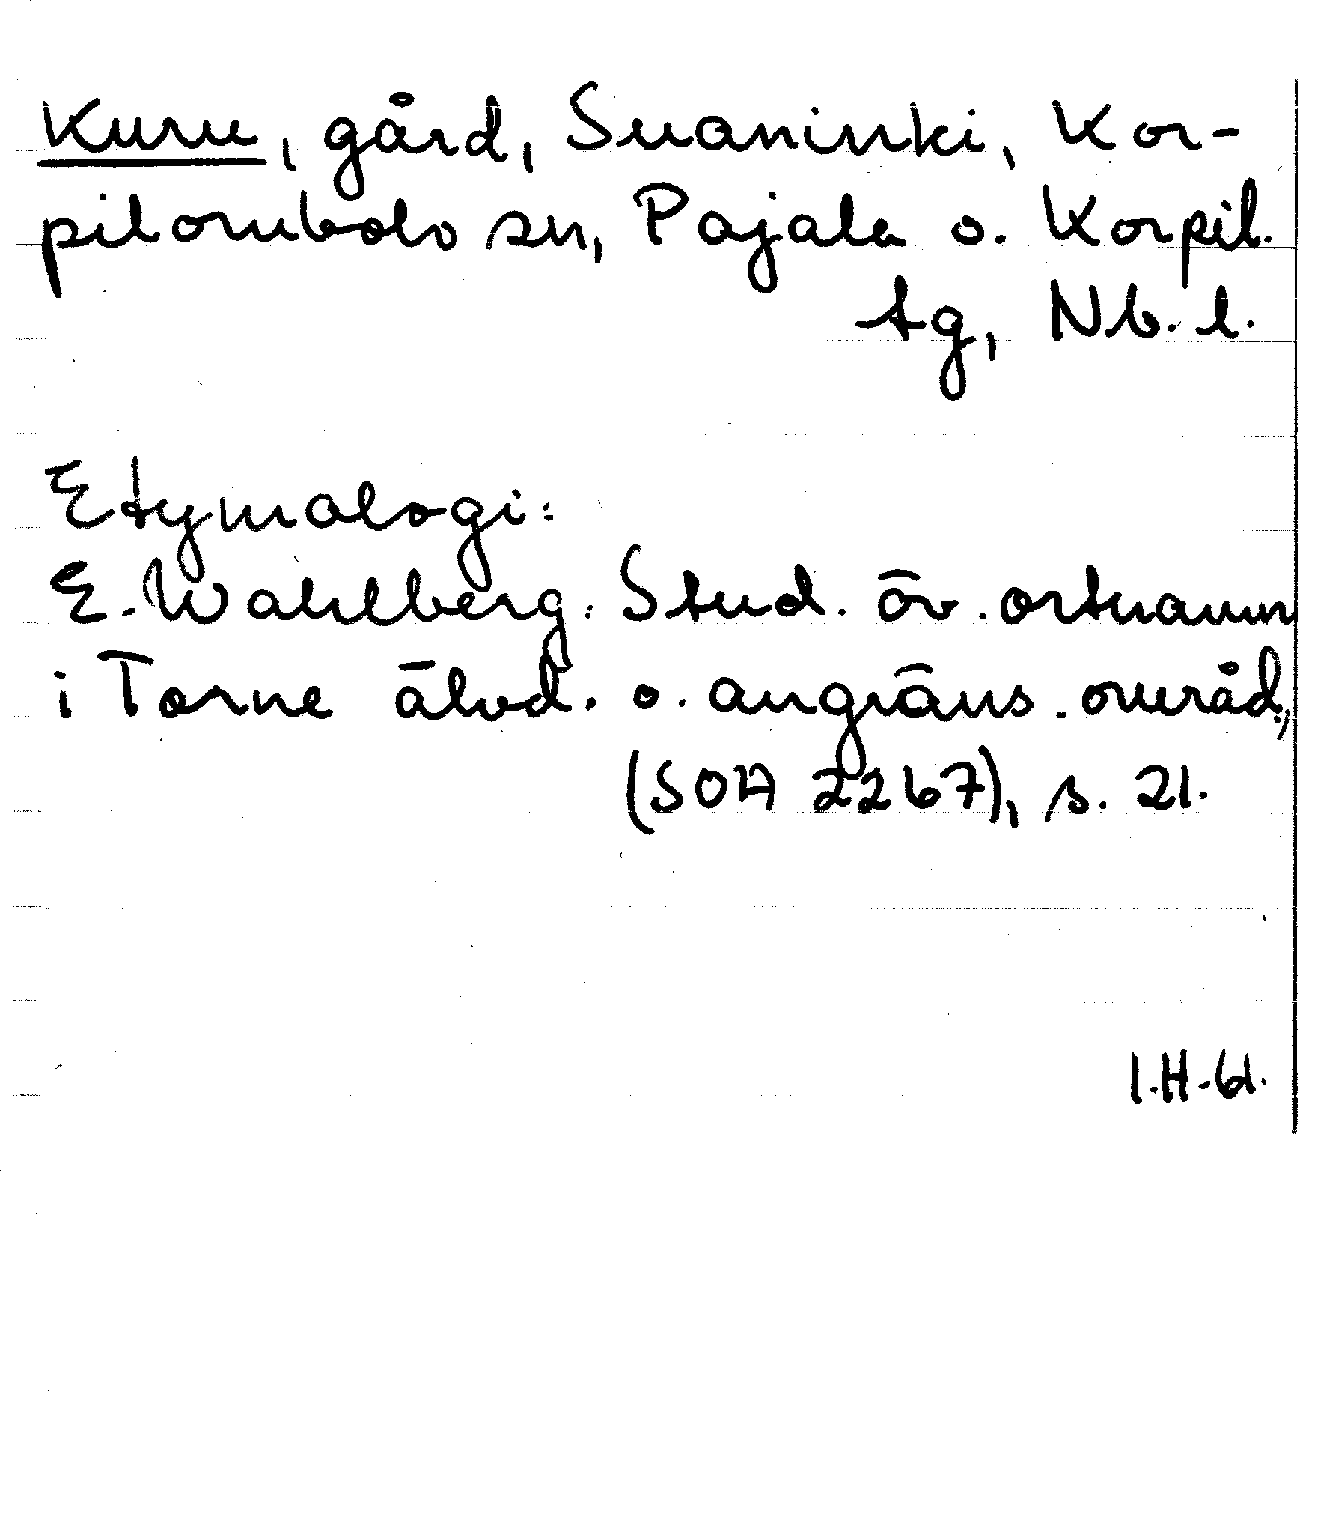 Kuru, gård, Suaninki, Kor-
pilombolo sn, Pajala o. Korpil.
tg, Nb. l.
Etymologi:
E. Wahlberg: Stud. öv. ortnamn
i Torne älvd. o. angräns. områd.,
(SOA 2267), s. 21.
I.H.-61.